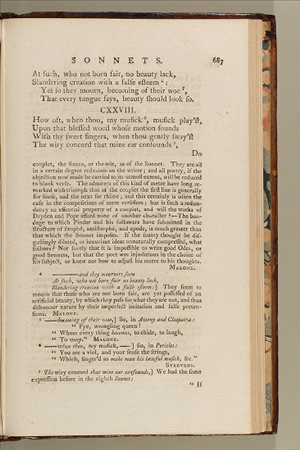 SONNETS. 687
At ſuch, who not born fair, no beauty lack,
Slandering creation with a falſe eſteem:
Yet ſo they mourn, becoming of their woe,
That every tongue ſays, beauty ſhould look ſo.
CXXVIII.
How oft, when thou, my muſick, muſick play'ſt,
Upon that bleſſed wood whoſe motion ſounds
With thy ſweet fingers, when thou gently ſway'ſt
The wiry concord that mine ear confounds,
Do
couplet, the ſtanza, or the ode, as of the Sonnet. They are all
in a certain degree
blank verſe. The admirers of this kind of metre have long re-
marked with triumph that of the couplet the firſt line is generally
for ſenſe, and the next for rhime; and this certainly is often the
caſe in the compoſitions of mere verſifiers; but is ſuch a redun-
dancy an eſſential property of a couplet, and will the works of
Dryden and Pope afford none of another character?—The bon-
dage to which Pindar and his followers have ſubmitted in the
ſtructure of ſtrophé, antiſtrophé, and epode, is much greater than
that which the Sonnet impoſes. If the ſcanty thought be diſ-
guſtingly dilated, or luxuriant ideas unnaturally compreſſed, what
follows? Not ſurely that it is impoſſible to write good Odes, or
good Sonnets, but that the poet was injudicious in the choice of
his ſubject, or knew not how to adjuſt his metre to his thoughts.
MALONE.
—and they mourners ſeem
At ſuch, who not born fair no beauty lack,
Slandering creation with a falſe eſteem:] They ſeem to
mourn that thoſe who are not born fair, are yet poſſeſſed of an
artificial beauty, by which they paſs for what they are not, and thus
diſhonour nature by their imperfect imitation and falſe preten-
ſions. MALONE.
—becoming of their woe,] So, in Antony and Cleopatra:
" Fye, wrangling queen!
" Whom every thing becomes, to chide, to laugh,
" To weep." MALONE.
—when thou, my muſick,—] So, in Pericles:
" You are a viol, and your ſenſe the ſtrings,
" Which, finger'd to make man his lawful muſick, &c."
STEEVENS.
The wiry concord that mine ear confounds,] We had the ſame
expreſſion before in the eighth Sonnet:
" If